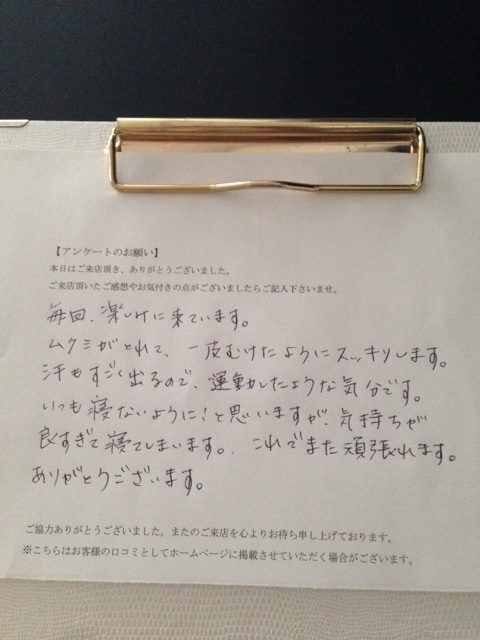 【アンケートのお願い】
本日はご来店頂き、ありがとうございました。
ご来店頂いたご感想やお気付きの点がございましたらご記入下さいませ。
毎回、楽しみに来ています。
ムクミがとれて、一皮むけたようにスッキリします。
汗もすごく出るので、運動したような気分です。
いつも寝ないように!と思いますが、気持ちが
良すぎて寝てしまいます。これでまた頑張れます。
ありがとうございます。
ご協力ありがとうございました。またのご来店を心よりお待ち申し上げております。
※こちらはお客様の口コミとしてホームページに掲載させていただく場合がございます。